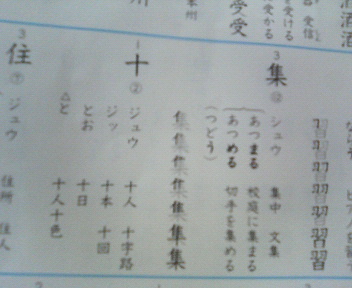 習習習習習習習
3
集
⑫
シュウ 集中 文集
あつまる 校庭に集まる
あつめる 切手を集める
(つどう)
集集集集集集集
1
十
②
ジュウ 十人 十字路
ジッ 十本 十回
とお 十日
△と 十人十色
3
住
⑦
ジュウ 住所 住人